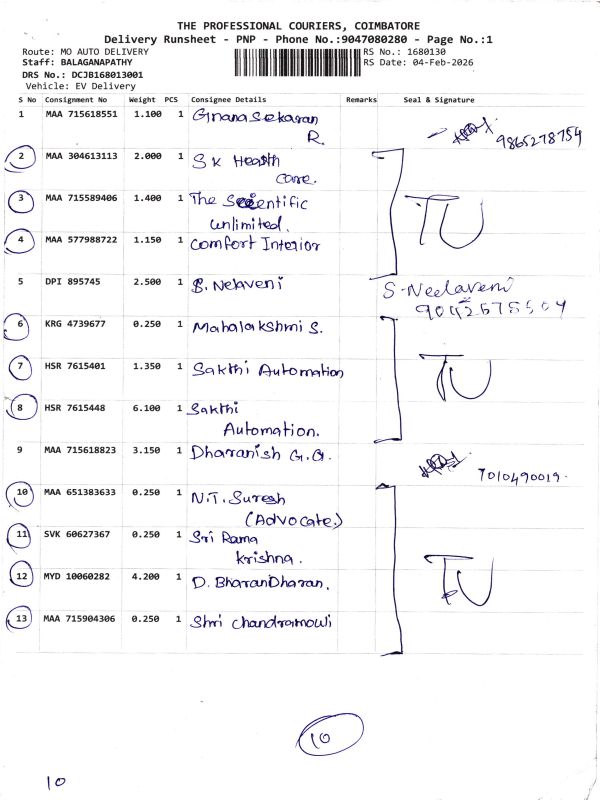 THE PROFESSIONAL COURIERS, COIMBATORE
Delivery Runsheet - PNP - Phone No.:9047080280 - Page No.:1
Route: MO AUTO DELIVERY RS No.: 1680130
Staff: BALAGANAPATHY RS Date: 04-Feb-2026
DRS No.: DCJB168013001
Vehicle: EV Delivery
S No Consignment No Weight PCS Consignee Details Remarks Seal & Signature
1 MAA 715618551 1.100 1 Gnanasekaran
R. 9865278754
2 MAA 304613113 2.000 1 S K Health
Care.
3 MAA 715589406 1.400 1 The Scientific
unlimited. TU
4 MAA 577988722 1.150 1 Comfort Interior
5 DPI 895745 2.500 1 S. Nelaveni S. Neelaveni
6 KRG 4739677 0.250 1 Mahalakshmi S.
7 HSR 7615401 1.350 1 Sakthi Automation TU
8 HSR 7615448 6.100 1 Sakthi
Automation.
9 MAA 715618823 3.150 1 Dharanish G.G. 7010490019.
10 MAA 651383633 0.250 1 N.T. Suresh
(Advocate.)
11 SVK 60627367 0.250 1 Sri Rama
krishna.
12 MYD 10060282 4.200 1 D. BharaniDharan. TU
13 MAA 715904306 0.250 1 Shri Chandramowli
10
10